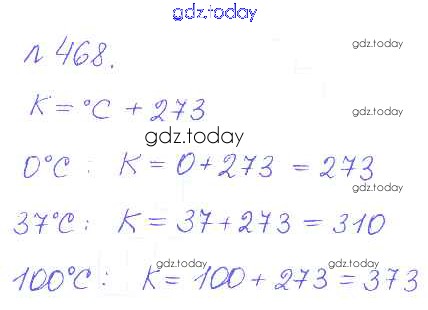 gdz.today
№ 468.
gdz.today
K = °C + 273
gdz.today
0°C : K = 0 + 273 = 273
gdz.today
37°C : K = 37 + 273 = 310
gdz.today gdz.today
100°C : K = 100 + 273 = 373